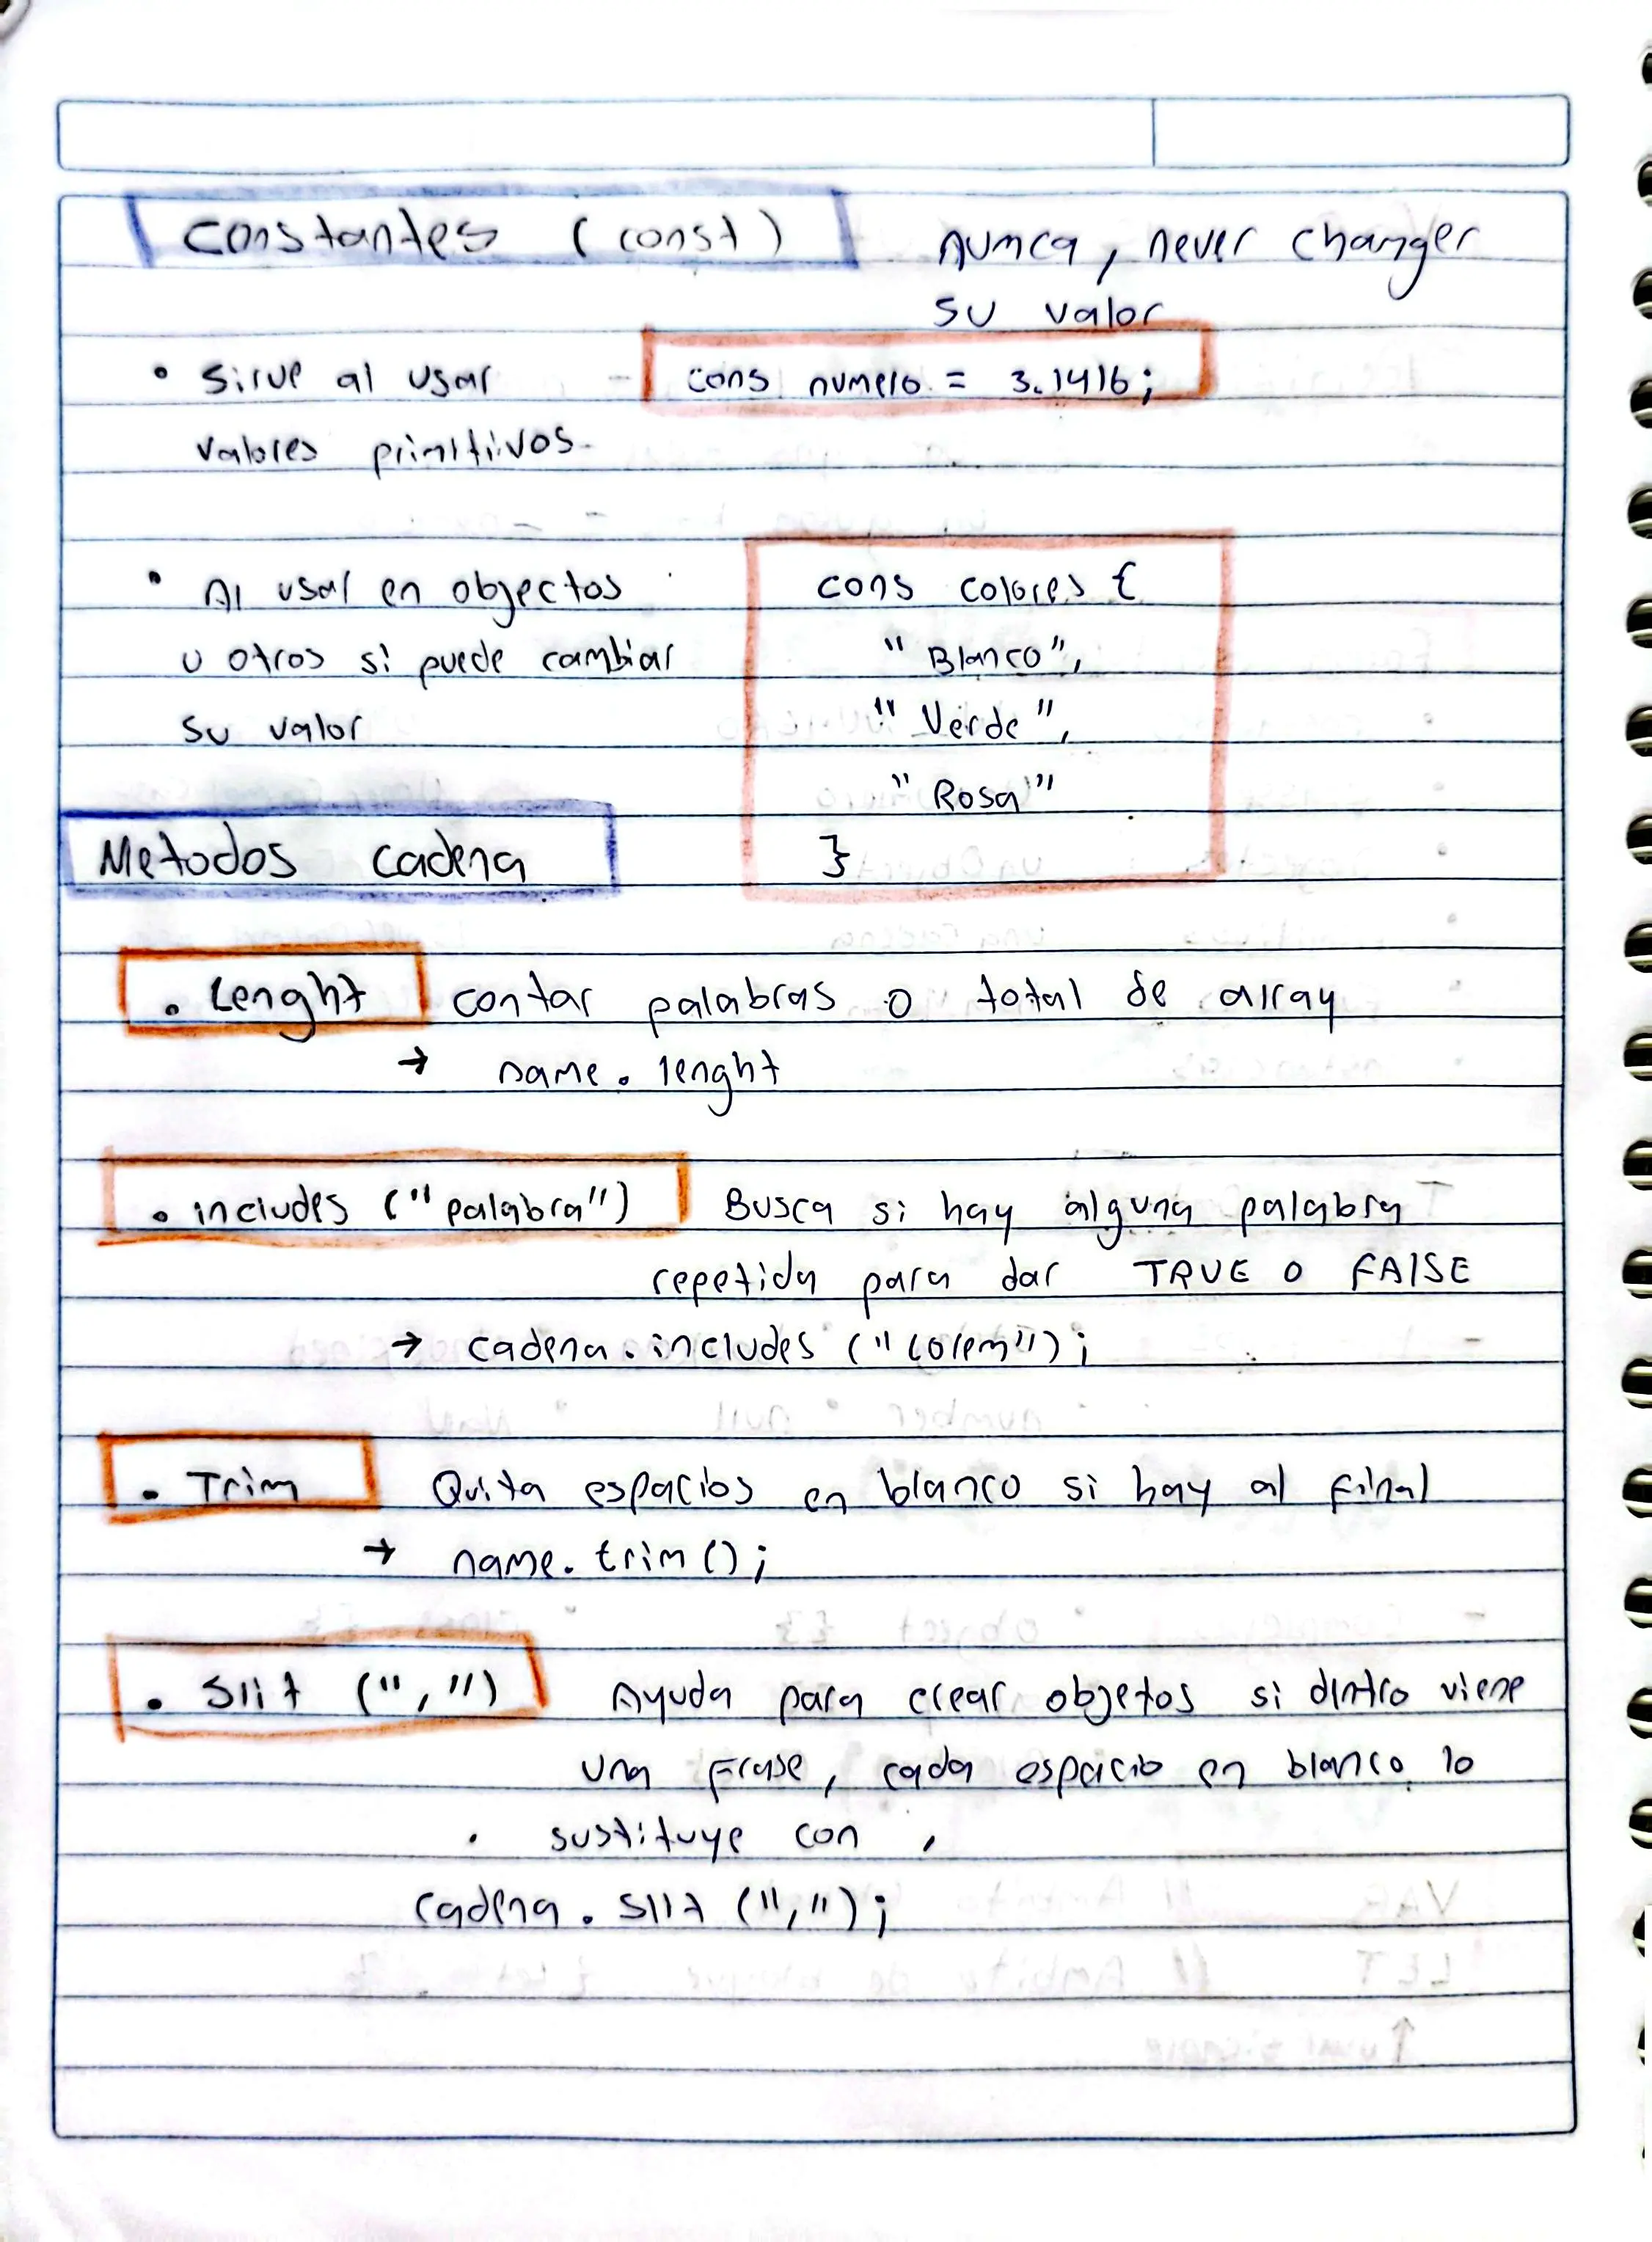 Constantes (const)
nunca, never changer
su valor
• Sirve al usar
cons numero = 3.1416;
valores primitivos.
• Al usar en objectos
u otros si puede cambiar
su valor
cons colores {
"Blanco",
"Verde",
"Rosa"
}
Metodos cadena
. Lenght contar palabras o total de array
→ name. lenght
. includes ("palabra") Busca si hay alguna palabra
repetida para dar TRUE O FAlSE
→ cadena. includes ("Lorem");
. Trim Quita espacios en blanco si hay al final
→ name. trim();
. Slit (",") Ayuda para crear objetos si dentro viene
una frase, cada espacio en blanco lo
sustituye con ,
cadena. Slit (",");